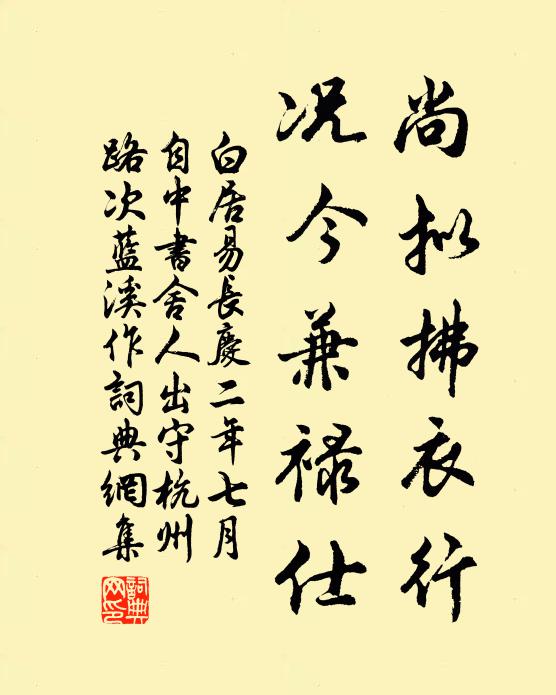 尚拟拂衣行
况今兼禄仕
白居易長慶二年七月
自中書舍人出守杭州
路次藍溪作詞典網集
詞典網印